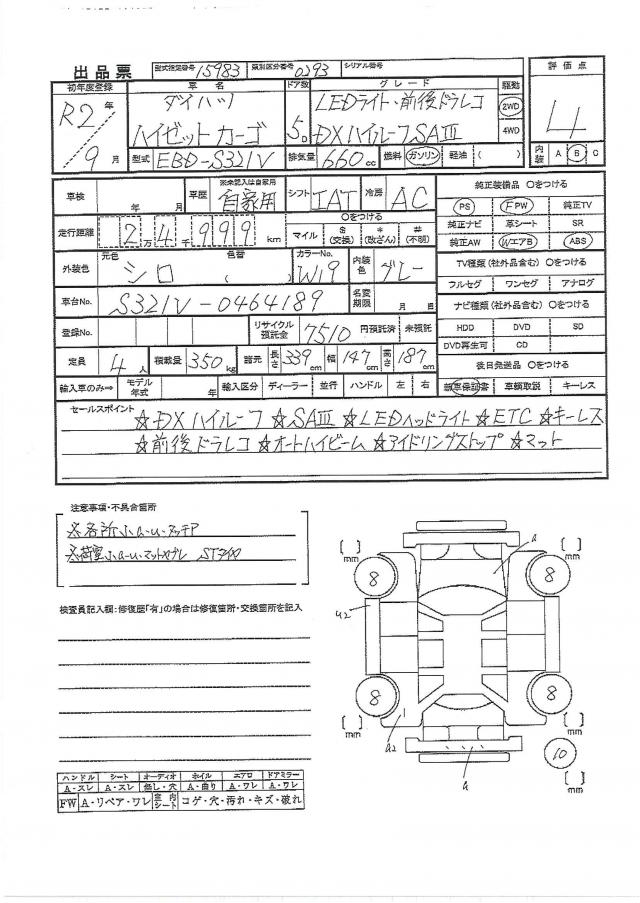 出品票
型式指定番号 15983 類別区分番号 0293 シリアル番号
初年度登録 車名 ドア数 グレード 駆動 評価点
R2年 ダイハツ LEDライト・前後ドラレコ 2WD
ハイゼットカーゴ 5D DXハイルーフSAⅢ 4WD 4
9月 型式 EBD-S321V 排気量 660cc 燃料 ガソリン 軽油 ( ) 内装 A B C
車検 年 月 車歴 ※未記入は自家用 自家用 シフト IAT 冷房 AC 純正装備品 〇をつける
PS PW 純正TV
走行距離 2万4千999km 〇をつける マイル $(交換) *(改ざん) #(不明) 純正ナビ 革シート SR
純正AW WエアB ABS
外装色 元色 シロ 色替 ( ) カラーNo. W19 内装色 グレー TV種類(社外品含む) 〇をつける
フルセグ ワンセグ アナログ
車台No. S321V-0464189 名変期限 月 日 ナビ種類(社外品含む) 〇をつける
登録No. リサイクル預託金 7510 円預託済 未預託 HDD DVD SD
DVD再生可 CD
定員 4人 積載量 350kg 諸元 長さ 339cm 幅 147cm 高さ 187cm 後日発送品 〇をつける
輸入車のみ⇒ モデル年式 年 輸入区分 ディーラー ・ 並行 ハンドル 左 ・ 右 新車保証書 車輌取説 キーレス
セールスポイント ☆DXハイルーフ ☆SAⅢ ☆LEDヘッドライト ☆ETC ☆キーレス
☆前後ドラレコ ☆オートハイビーム ☆アイドリングストップ ☆マット
注意事項・不具合箇所
※各所小a・u・タッチア
※荷室小a・u・マットヤブレ
検査員記入欄:修復歴「有」の場合は修復箇所・交換箇所を記入
a
[ ] mm [ ] mm
8 8
u2
8 8
1
a2
[ ] mm [ ] mm
10
a
[ ] mm
ハンドル シート オーディオ ホイル エアロ ドアミラー
A・スレ A・スレ 無し・穴 A・曲り A・ワレ A・ワレ
FW A・リペア・ワレ 室内シート コゲ・穴・汚れ・キズ・破れ